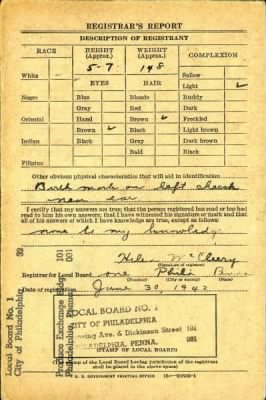 REGISTRAR'S REPORT
DESCRIPTION OF REGISTRANT
RACE HEIGHT (Approx.) WEIGHT (Approx.) COMPLEXION
5-7 148
White Sallow
EYES HAIR Light ✓
Negro Blue Blonde Ruddy
Gray Red Dark
Oriental Hazel Brown ✓ Freckled
Brown ✓ Black Light brown
Indian Black Gray Dark brown
Bald Black
Filipino
Other obvious physical characteristics that will aid in identification
Birth mark on left cheek
near ear
I certify that my answers are true; that the person registered has read or has had
read to him his own answers; that I have witnessed his signature or mark and that
all of his answers of which I have knowledge are true, except as follows:
none to my knowledge
Helen McCleary
(Signature of registrar)
Registrar for Local Board one Phila
(Number) (City or county) (State)
Date of registration June 30, 1942
LOCAL BOARD NO. 1
CITY OF PHILADELPHIA
Avenue & Dickinson Street 101
PHILADELPHIA, PENNA.
(STAMP OF LOCAL BOARD)
of the Local Board having jurisdiction of the registrant
shall be placed in the above space)
U. S. GOVERNMENT PRINTING OFFICE
Local Board No. 1 39
City of Philadelphia
Exchange Bldg 101
Philadelphia, Penna.